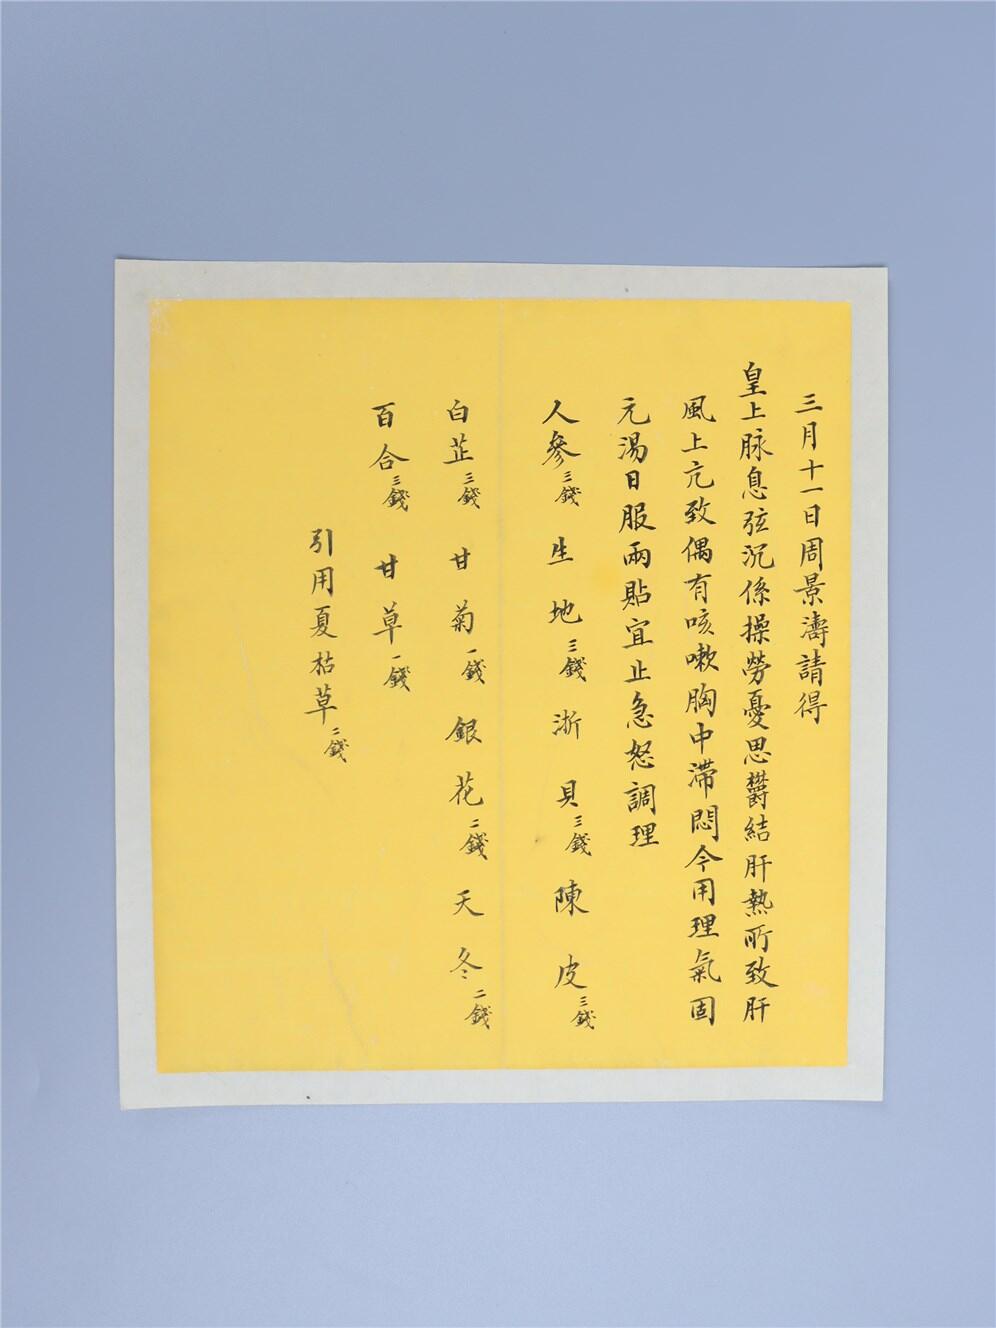 三月十一日周景濤請得
皇上脉息弦沉係操勞憂思欝結肝熱所致肝
風上亢致偶有咳嗽胸中滯悶今用理氣固
元湯日服兩貼宜止急怒調理
人參三錢 生地三錢 浙貝三錢 陳皮三錢
白芷三錢 甘菊一錢 銀花二錢 天冬二錢
百合三錢 甘草一錢
引用夏枯草二錢